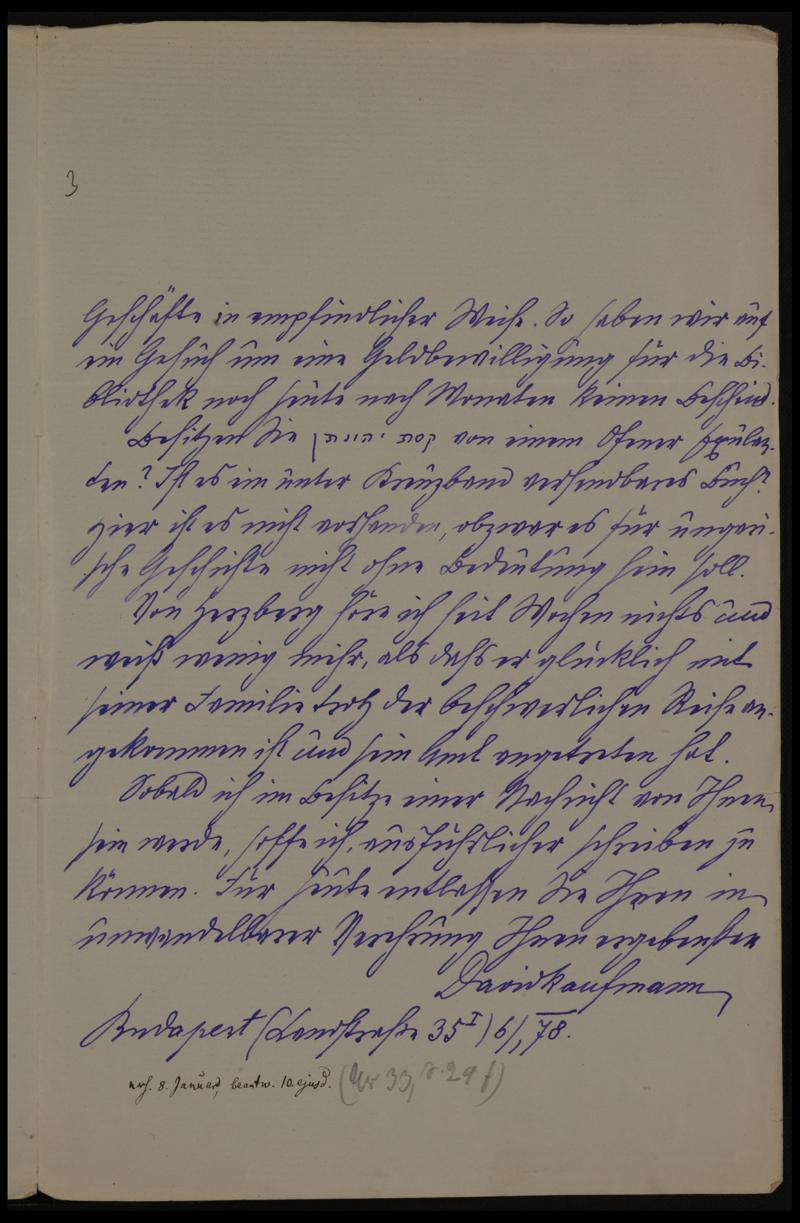 3
Geschäfte in empfindlicher Weise. So haben wir auf
ein Gesuch um eine Geldbewilligung für die Bi-
bliothek noch heute nach Monaten keinen Bescheid.
Besitzen Sie קסת יהונתן von einem Ofener Exulan-
ten? Ist es ein unter Kreuzband versendbares Buch?
Hier ist es nicht vorhanden, obzwar es für ungari-
sche Geschichte nicht ohne Bedeutung sein soll.
Von Herzberg höre ich seit Wochen nichts und
weiß wenig mehr, als daß er glücklich mit
seiner Familie trotz der beschwerlichen Reise an-
gekommen ist und sein Amt angetreten hat.
Sobald ich im Besitze einer Nachricht von Ihnen
sein werde, hoffe ich, ausführlicher schreiben zu
können. Für heute entlassen Sie Ihren in
unwandelbarer Verehrung Ihnen ergebensten
David Kaufmann
Budapest (Landstraße 35 I) 6/1 78.
8. Januar, beantw. 10. ejusd. (Nr 33, S. 29 f)